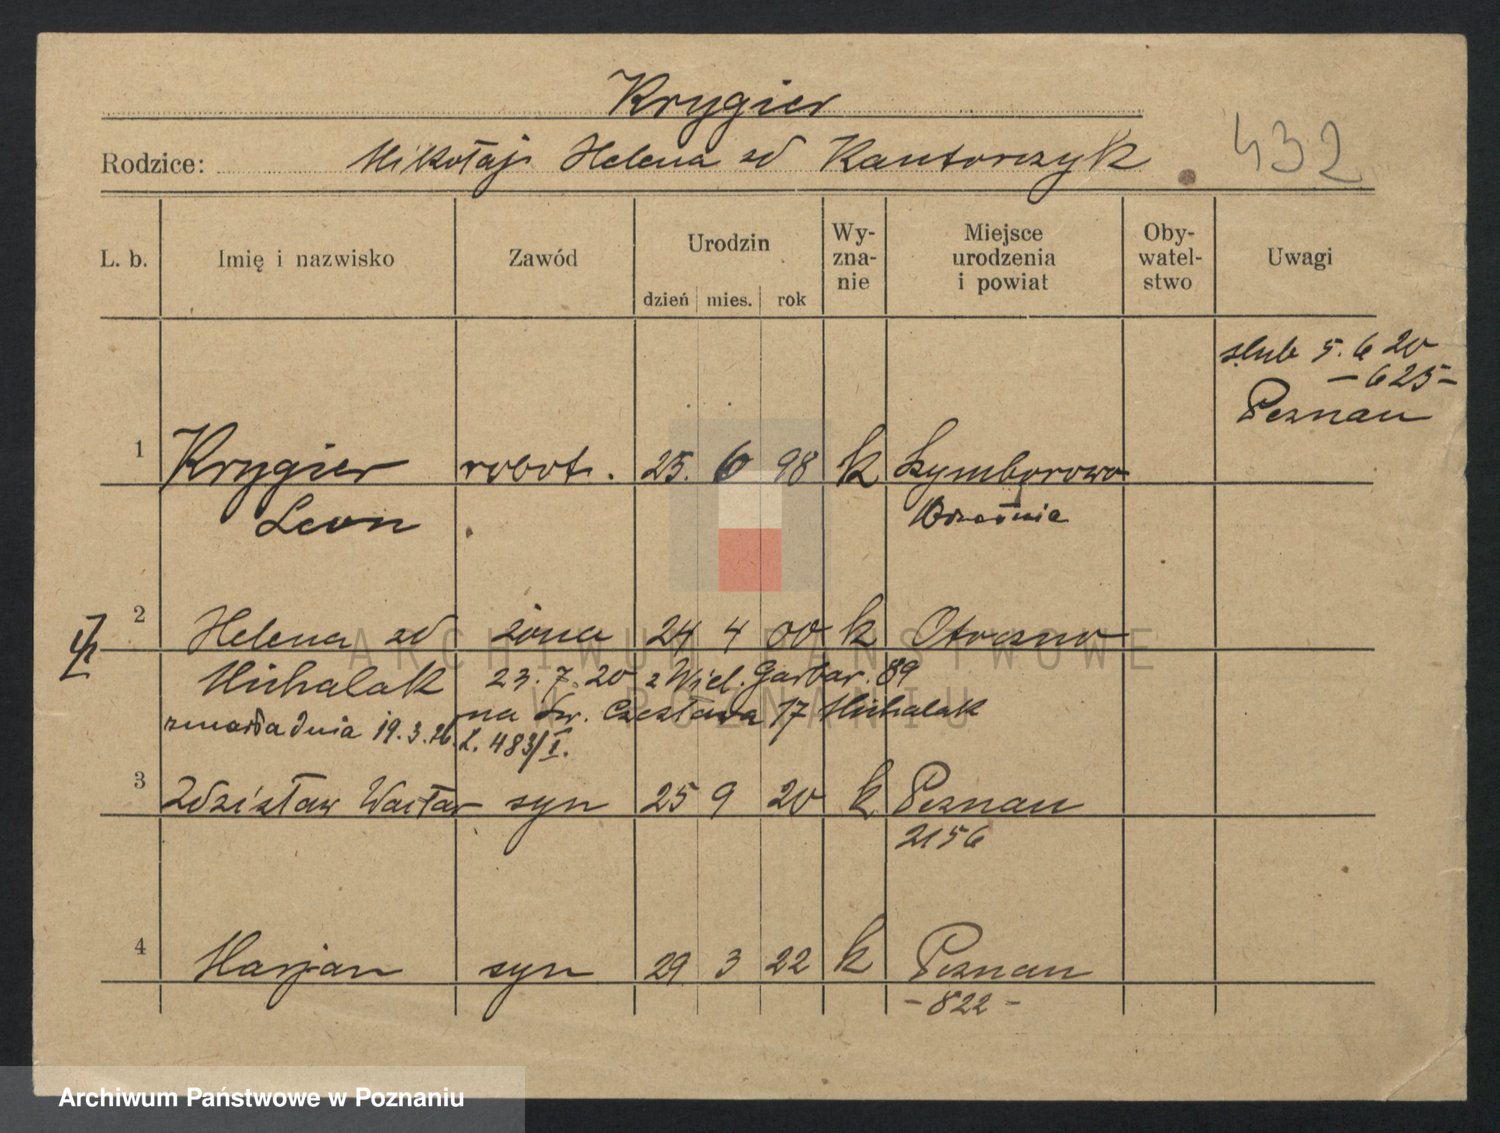 Krygier
Rodzice: Mikołaj Helena zd Kantorczyk
432
L. b. Imię i nazwisko Zawód Urodzin dzień mies. rok Wy-zna-nie Miejsce urodzenia i powiat Oby-watel-stwo Uwagi
ślub 5. 6 20
- 625 -
Poznań
1 Krygier robotn. 25. 6 98 k
Leon Września
2 Helena zd żona 24 4 00 k Otoczno
Michalak 23. 7. 20 z Wiel. Garbar. 89
na Św. Czesława 17 Michalak
zmarła dnia 19. 3. 26. L. 483/I.
3 Zdzisław Wacław syn 25 9 20 k Poznań
2156
4 Marjan syn 29 3 22 k Poznań
- 822 -
ARCHIWUM PAŃSTWOWE
W POZNANIU
Archiwum Państwowe w Poznaniu